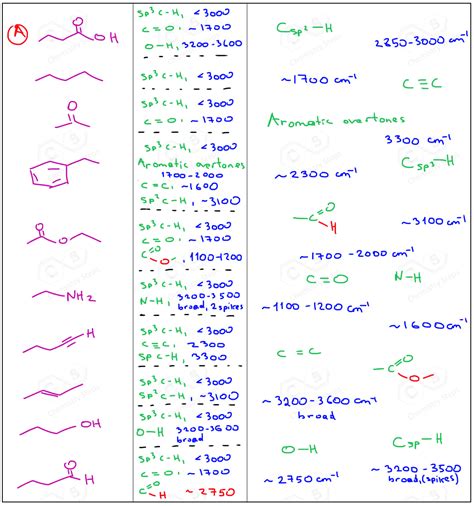 A
O
O H
Sp³ C-H, <3000
C=O, ~1700
O-H, 3200-3600
Sp³ C-H, <3000
O
Sp³ C-H, <3000
C=O, ~1700
Sp³ C-H, <3000
Aromatic overtones
1700-2000
C=C, ~1600
Sp² C-H, ~3100
O
O
Sp³ C-H, <3000
C=O, ~1700
C O O, 1100-1200
NH₂
Sp³ C-H, <3000
N-H, 3200-3500
broad, 2 spikes
Sp³ C-H, <3000
C≡C, 2300
Sp C-H, 3300
Sp³ C-H, <3000
C=C, ~3100
OH
Sp³ C-H, <3000
O-H 3200-3600
broad
O
H
Sp³ C-H, <3000
C=O, ~1700
C O H ~2750
Csp²-H
2850-3000 cm⁻¹
~1700 cm⁻¹
C≡C
Aromatic overtones
3300 cm⁻¹
~2300 cm⁻¹
Csp³-H
C O H
~3100 cm⁻¹
~1700-2000 cm⁻¹
C=O
N-H
~1100-1200 cm⁻¹
~1600 cm⁻¹
C=C
C O O
~3200-3600 cm⁻¹
broad
O-H
Csp-H
~2750 cm⁻¹
~3200-3500
broad, (spikes)